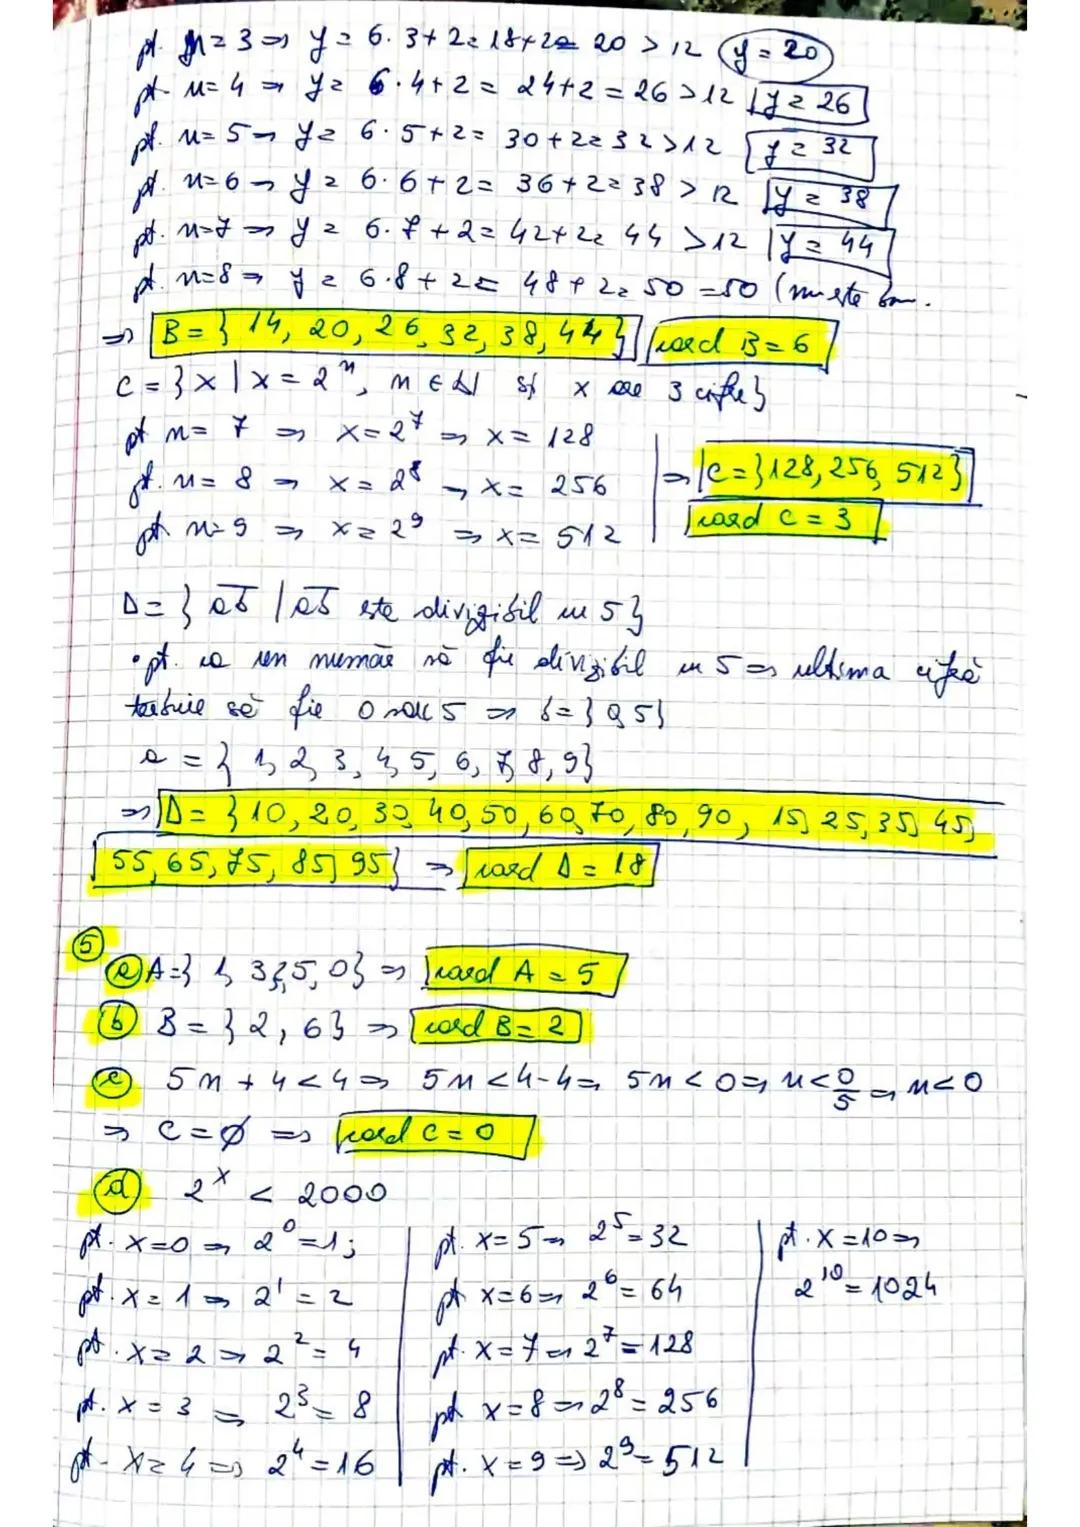 pt. n = 3 ⇒ y = 6 · 3 + 2 = 18 + 2 = 20 > 12 y = 20
pt. n = 4 ⇒ y = 6 · 4 + 2 = 24 + 2 = 26 > 12 y = 26
pt. n = 5 ⇒ y = 6 · 5 + 2 = 30 + 2 = 32 > 12 y = 32
pt. n = 6 ⇒ y = 6 · 6 + 2 = 36 + 2 = 38 > 12 y = 38
pt. n = 7 ⇒ y = 6 · 7 + 2 = 42 + 2 = 44 > 12 y = 44
pt. n = 8 ⇒ y = 6 · 8 + 2 = 48 + 2 = 50 = 50 (nu este
⇒ B = { 14, 20, 26, 32, 38, 44 } card B = 6
C = { x | x = 2ⁿ, n ∈ N și x are 3 cifre }
pt n = 7 ⇒ x = 2⁷ ⇒ x = 128
pt. n = 8 ⇒ x = 2⁸ ⇒ x = 256
pt n = 9 ⇒ x = 2⁹ ⇒ x = 512
⇒ C = { 128, 256, 512 }
card C = 3
D = { ab | ab este divizibil cu 5 }
• pt. ca un număr să fie divizibil cu 5 ⇒ ultima cifră
trebuie să fie 0 sau 5 ⇒ b = { 0, 5 }
a = { 1, 2, 3, 4, 5, 6, 7, 8, 9 }
⇒ D = { 10, 20, 30, 40, 50, 60, 70, 80, 90, 15, 25, 35, 45,
55, 65, 75, 85, 95 } ⇒ card D = 18
5
a A = { 1, 3 { 5, 0 } ⇒ card A = 5
b B = { 2, 6 } ⇒ card B = 2
c 5n + 4 < 4 ⇒ 5n < 4 - 4 ⇒ 5n < 0 ⇒ n < 0/5 ⇒ n < 0
⇒ C = ∅ ⇒ card C = 0
d 2ˣ < 2000
pt. x = 0 ⇒ 2⁰ = 1;
pt. x = 1 ⇒ 2¹ = 2
pt. x = 2 ⇒ 2² = 4
pt. x = 3 ⇒ 2³ = 8
pt. x = 4 ⇒ 2⁴ = 16
pt. x = 5 ⇒ 2⁵ = 32
pt x = 6 ⇒ 2⁶ = 64
pt. x = 7 ⇒ 2⁷ = 128
pt x = 8 ⇒ 2⁸ = 256
pt. x = 9 ⇒ 2⁹ = 512
pt. x = 10 ⇒
2¹⁰ = 1024